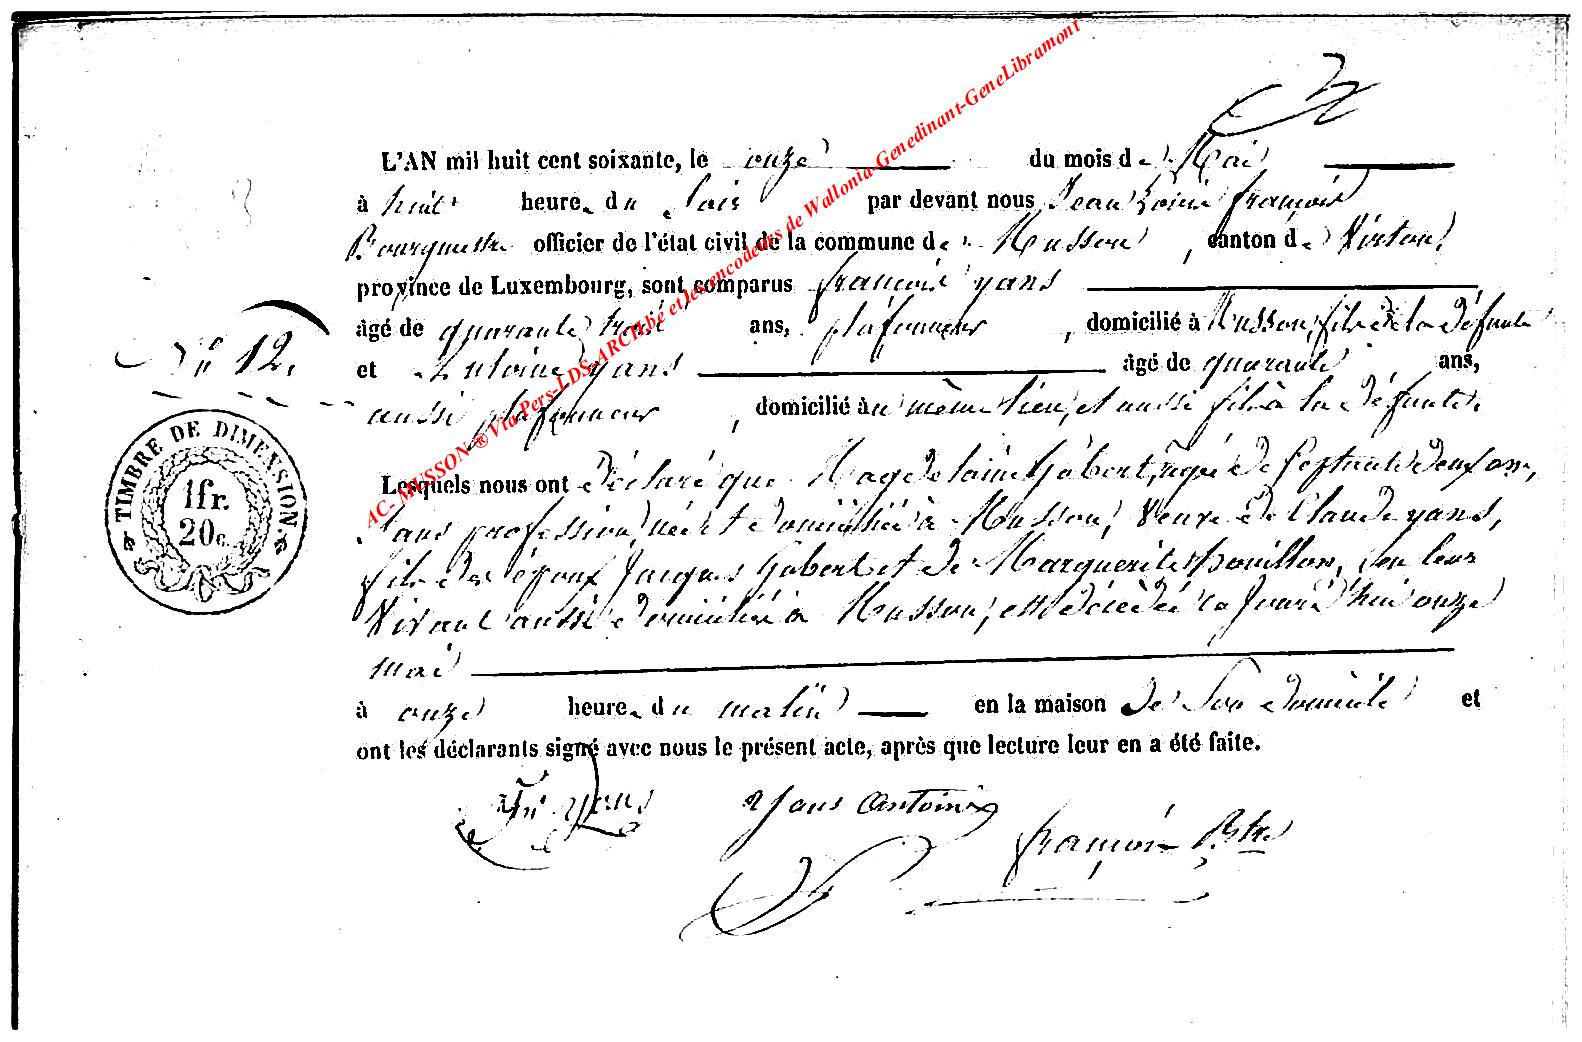 L'AN mil huit cent soixante, le onze du mois de Mai
à huit heures du soir par devant nous Jean Louis françois
Bourguestre officier de l'état civil de la commune de Musson, canton de Virton,
province de Luxembourg, sont comparus françois yans
âgé de quarante trois ans, plafonneur, domicilié à Musson, fils de la défunte
et Antoine yans âgé de quarante ans,
N° 12.
aussi plafonneur, domicilié au même lieu, et aussi fils à la défunte.
TIMBRE DE DIMENSION.
1fr.
20c.
Lesquels nous ont déclaré que Magdelaine Gobert, agée de septante deux ans,
sans profession, née et domiciliée à Musson, veuve de Claude yans,
fille des époux Jacques Gobert et de Marguerite, de leur
vivant aussi domiciliés à Musson, est décédée ce jourd'hui onze
mai
à onze heures du matin en la maison de son domicile et
ont les déclarants signé avec nous le présent acte, après que lecture leur en a été faite.
yans yans Antoine
françois Bstre
AC- MUSSON ® Via Pers-LDS-ARCH.be et les encodeurs de Wallonia-Genedinant-GeneLibramont